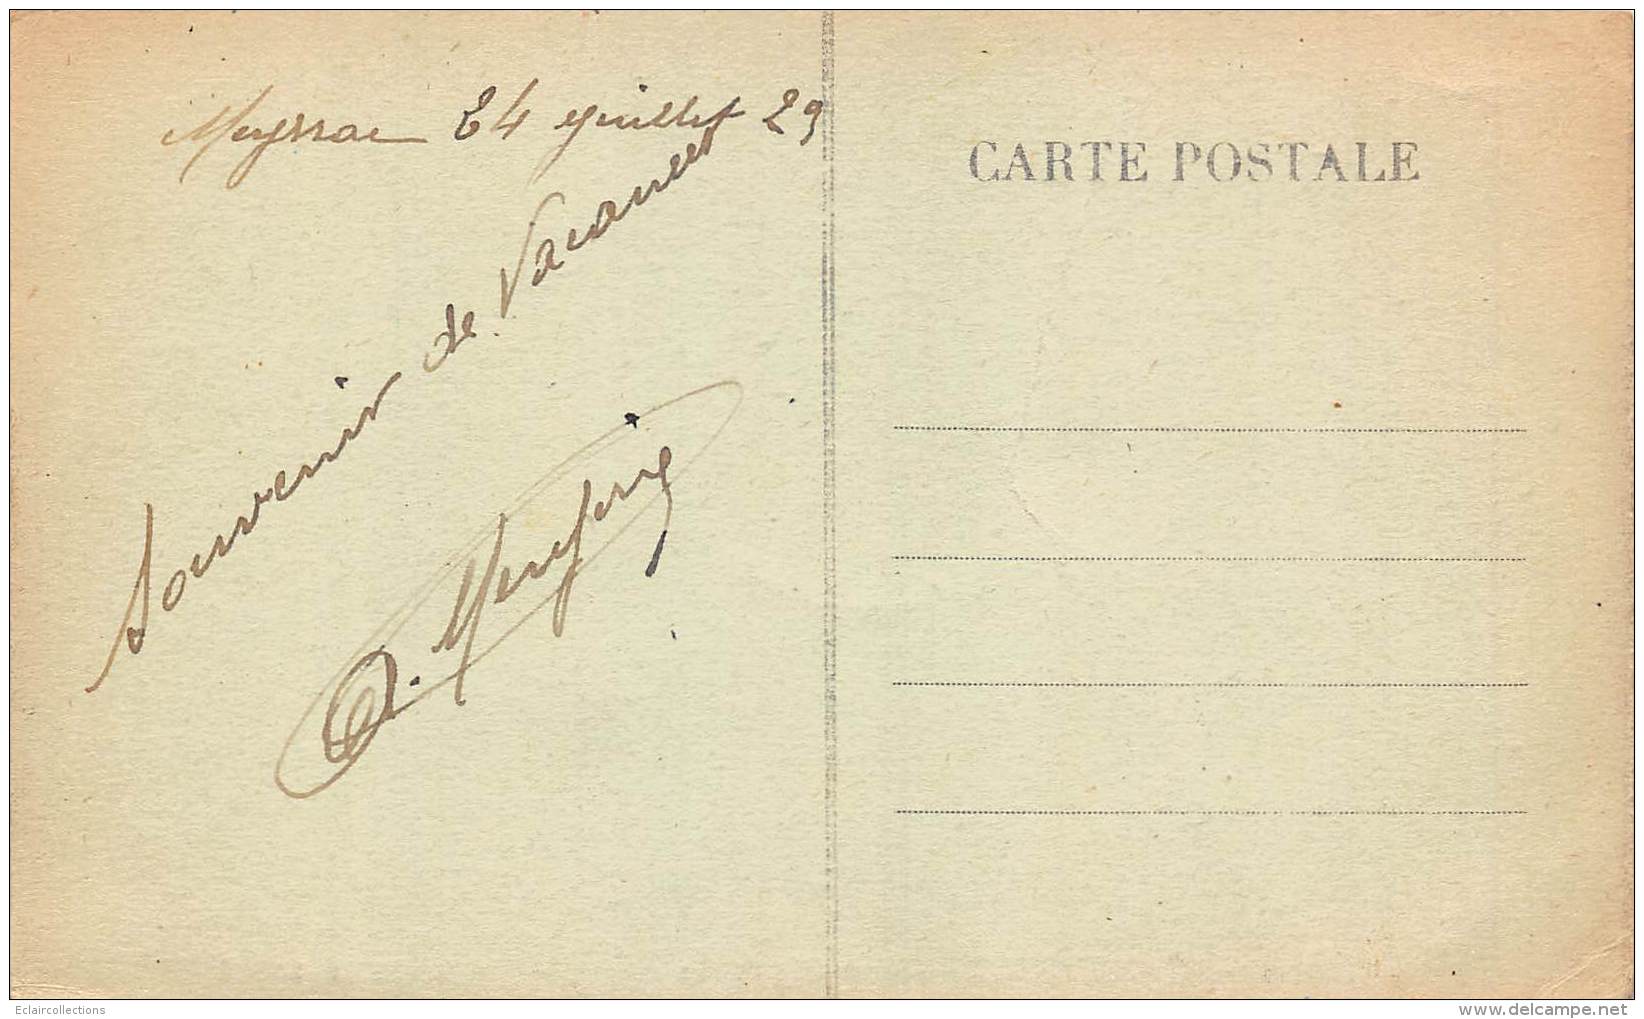 Meyssac 24 juillet 29
CARTE POSTALE
Souvenir de Vacances
Eclaircollections
www.delcampe.net